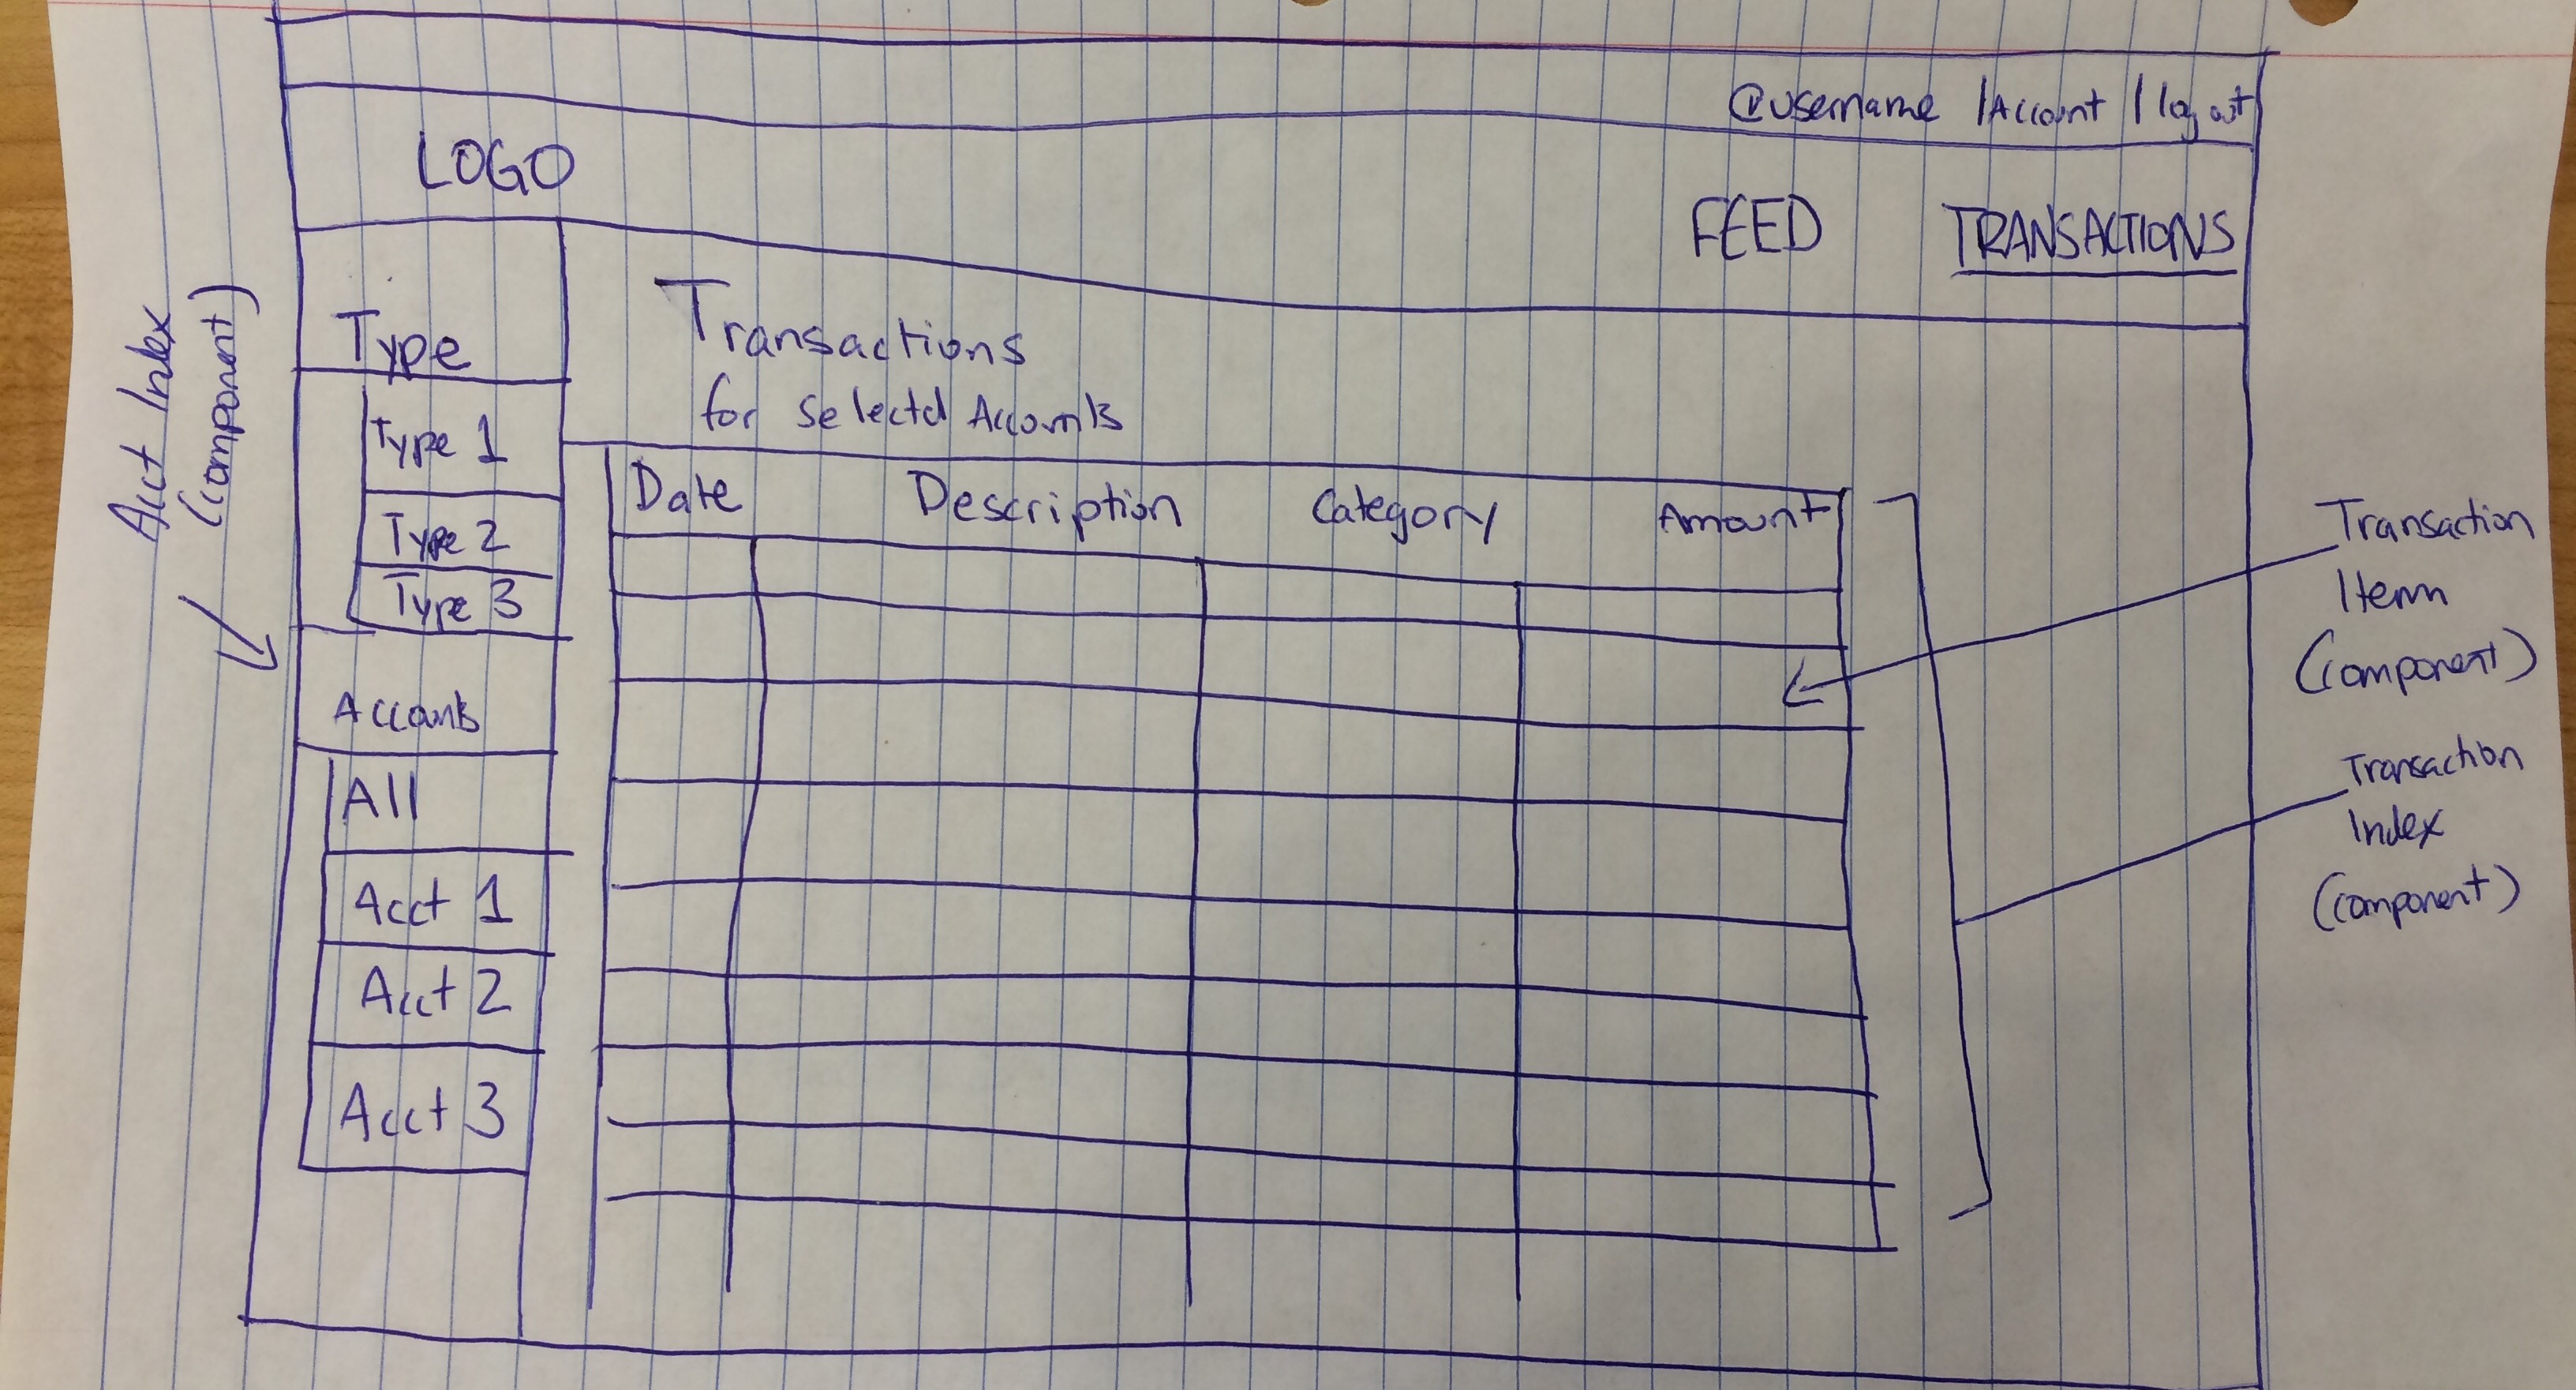 @username | Account | log out
LOGO
FEED TRANSACTIONS
Acct Index
(component)
Type
Type 1
Type 2
Type 3
Accounts
All
Acct 1
Acct 2
Acct 3
Transactions
for selectd Accounts
Date Description Category Amount
Transaction
Item
(component)
Transaction
Index
(component)